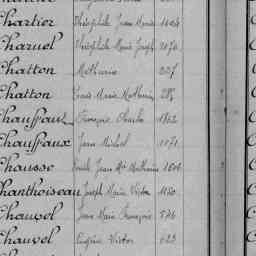 Chartier Théophile Jean Marie
Charuel Théophile Marie Joseph
Chatton Mathurin 227
Chatton Louis Marie Mathurin 285
Chauffaux François Charles 1862
Chauffaux Jean Michel 1071
Chausse Émile Jean Mie Mathurin 1606
Chanthoiseau Joseph Marie Victor 1180
Chauvel Jean Marie François 546
Chauvel Eugène Victor 623